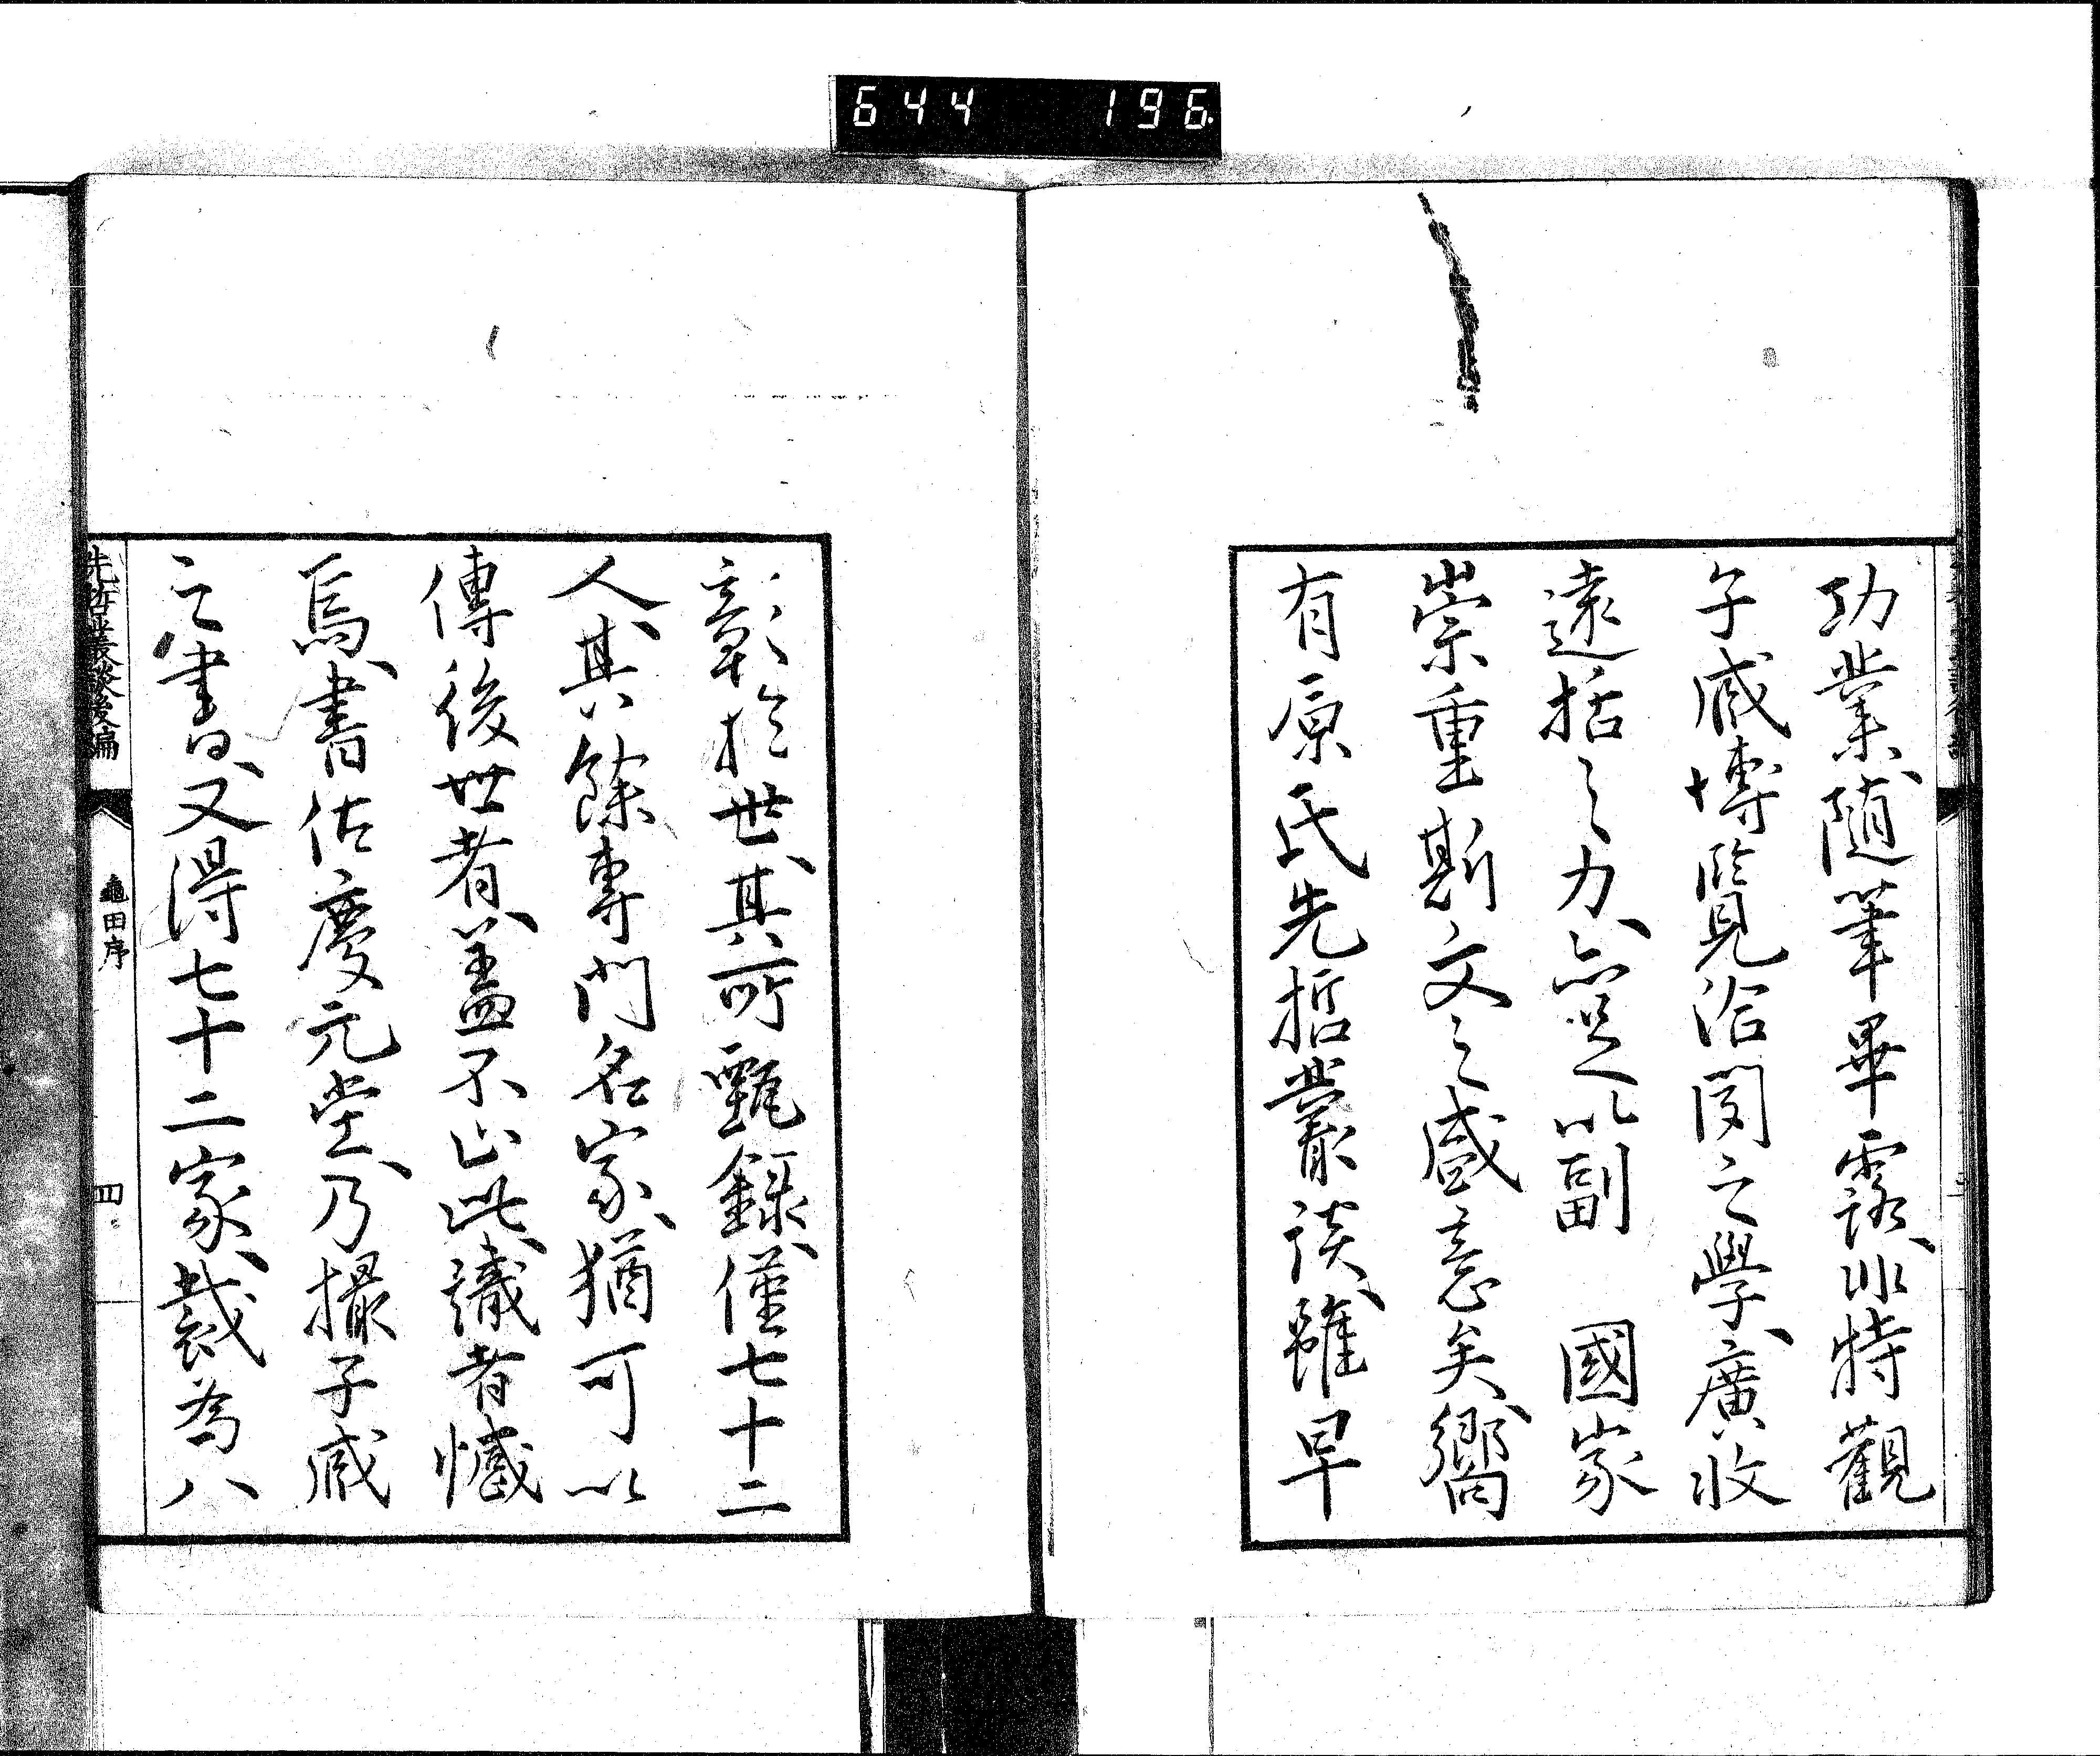 644 196
功業、随筆畢露、非特觀
子臧博覧洽聞之學、廣收
遠括之力、亦足以副 國家
崇重斯文之盛意矣、嚮
有原氏先哲叢談、雖早
彰於世、其所甄録、僅七十二
人、其餘專門名家、猶可以
傳後世者、蓋不止此、識者憾
焉、書估慶元堂、乃撮子臧
之書、又得七十二家、裁為八
先哲叢談後編
龜田序
四